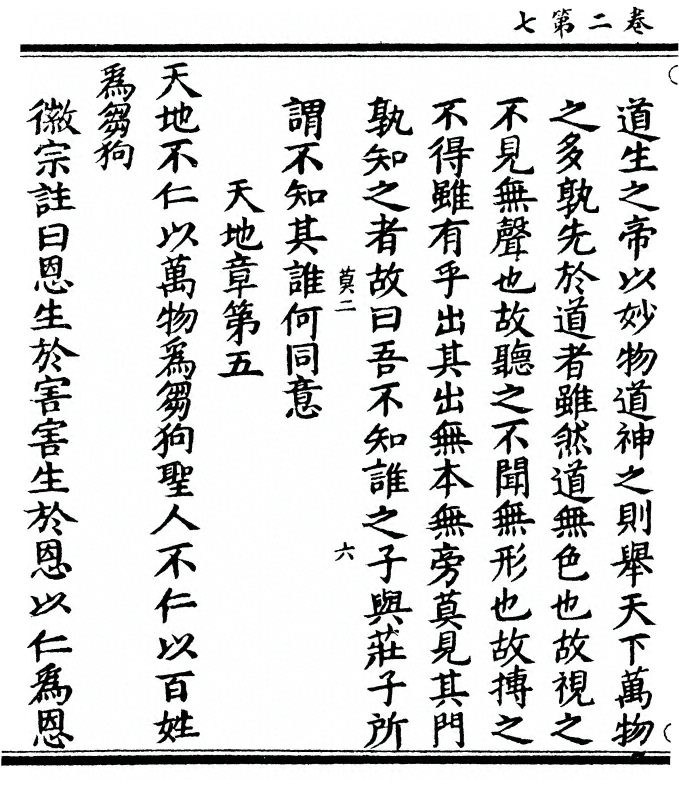 卷二第七
道生之帝以妙物道神之則舉天下萬物
之多孰先於道者雖然道無色也故視之
不見無聲也故聽之不聞無形也故摶之
不得雖有乎出其出無本無旁莫見其門
孰知之者故曰吾不知誰之子與莊子所
莫二
六
謂不知其誰何同意
天地章第五
天地不仁以萬物爲芻狗聖人不仁以百姓
爲芻狗
徽宗註曰恩生於害害生於恩以仁爲恩